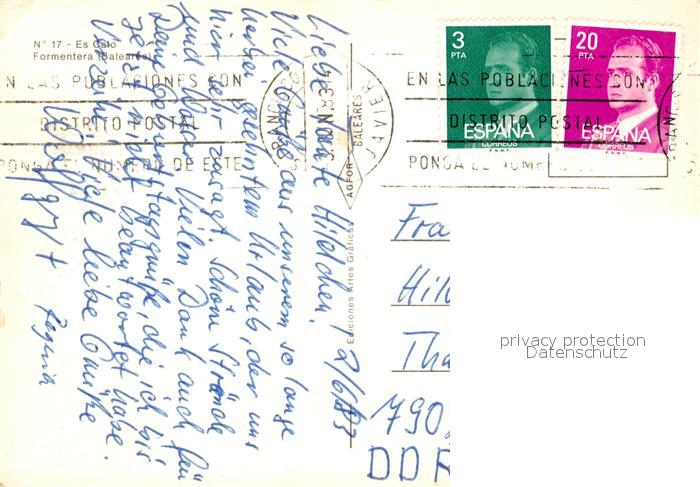 Nº 17 - Es Caló
Formentera (Baleares)
Liebe Tante Hildchen! 2/6/83
Viele Grüße aus unserem so lange
ersehntem Urlaub, der uns
hier sehr zusagt. Schöne Strände
und Vielen Dank auch für
Deine Geburtstagsgrüße, die ich bis
jetzt nicht beantwortet habe.
Viele liebe Grüße
Regina
Ediciones Artes Gráficas
AGFOR
EN LAS POBLACIONES CON
DISTRITO POSTAL
PONGA EL NUMERO DE ESTE
3 JUN 83
BALEARES
JAVIER
3
PTA
ESPAÑA
CORREOS
F.N.M.T.
20
PTA
ESPAÑA
CORREOS
F.N.M.T.
EN LAS POBLACIONES CON
DISTRITO POSTAL
PONGA EL NUME
Fra
Hil
Tha
790
DDR
privacy protection
Datenschutz